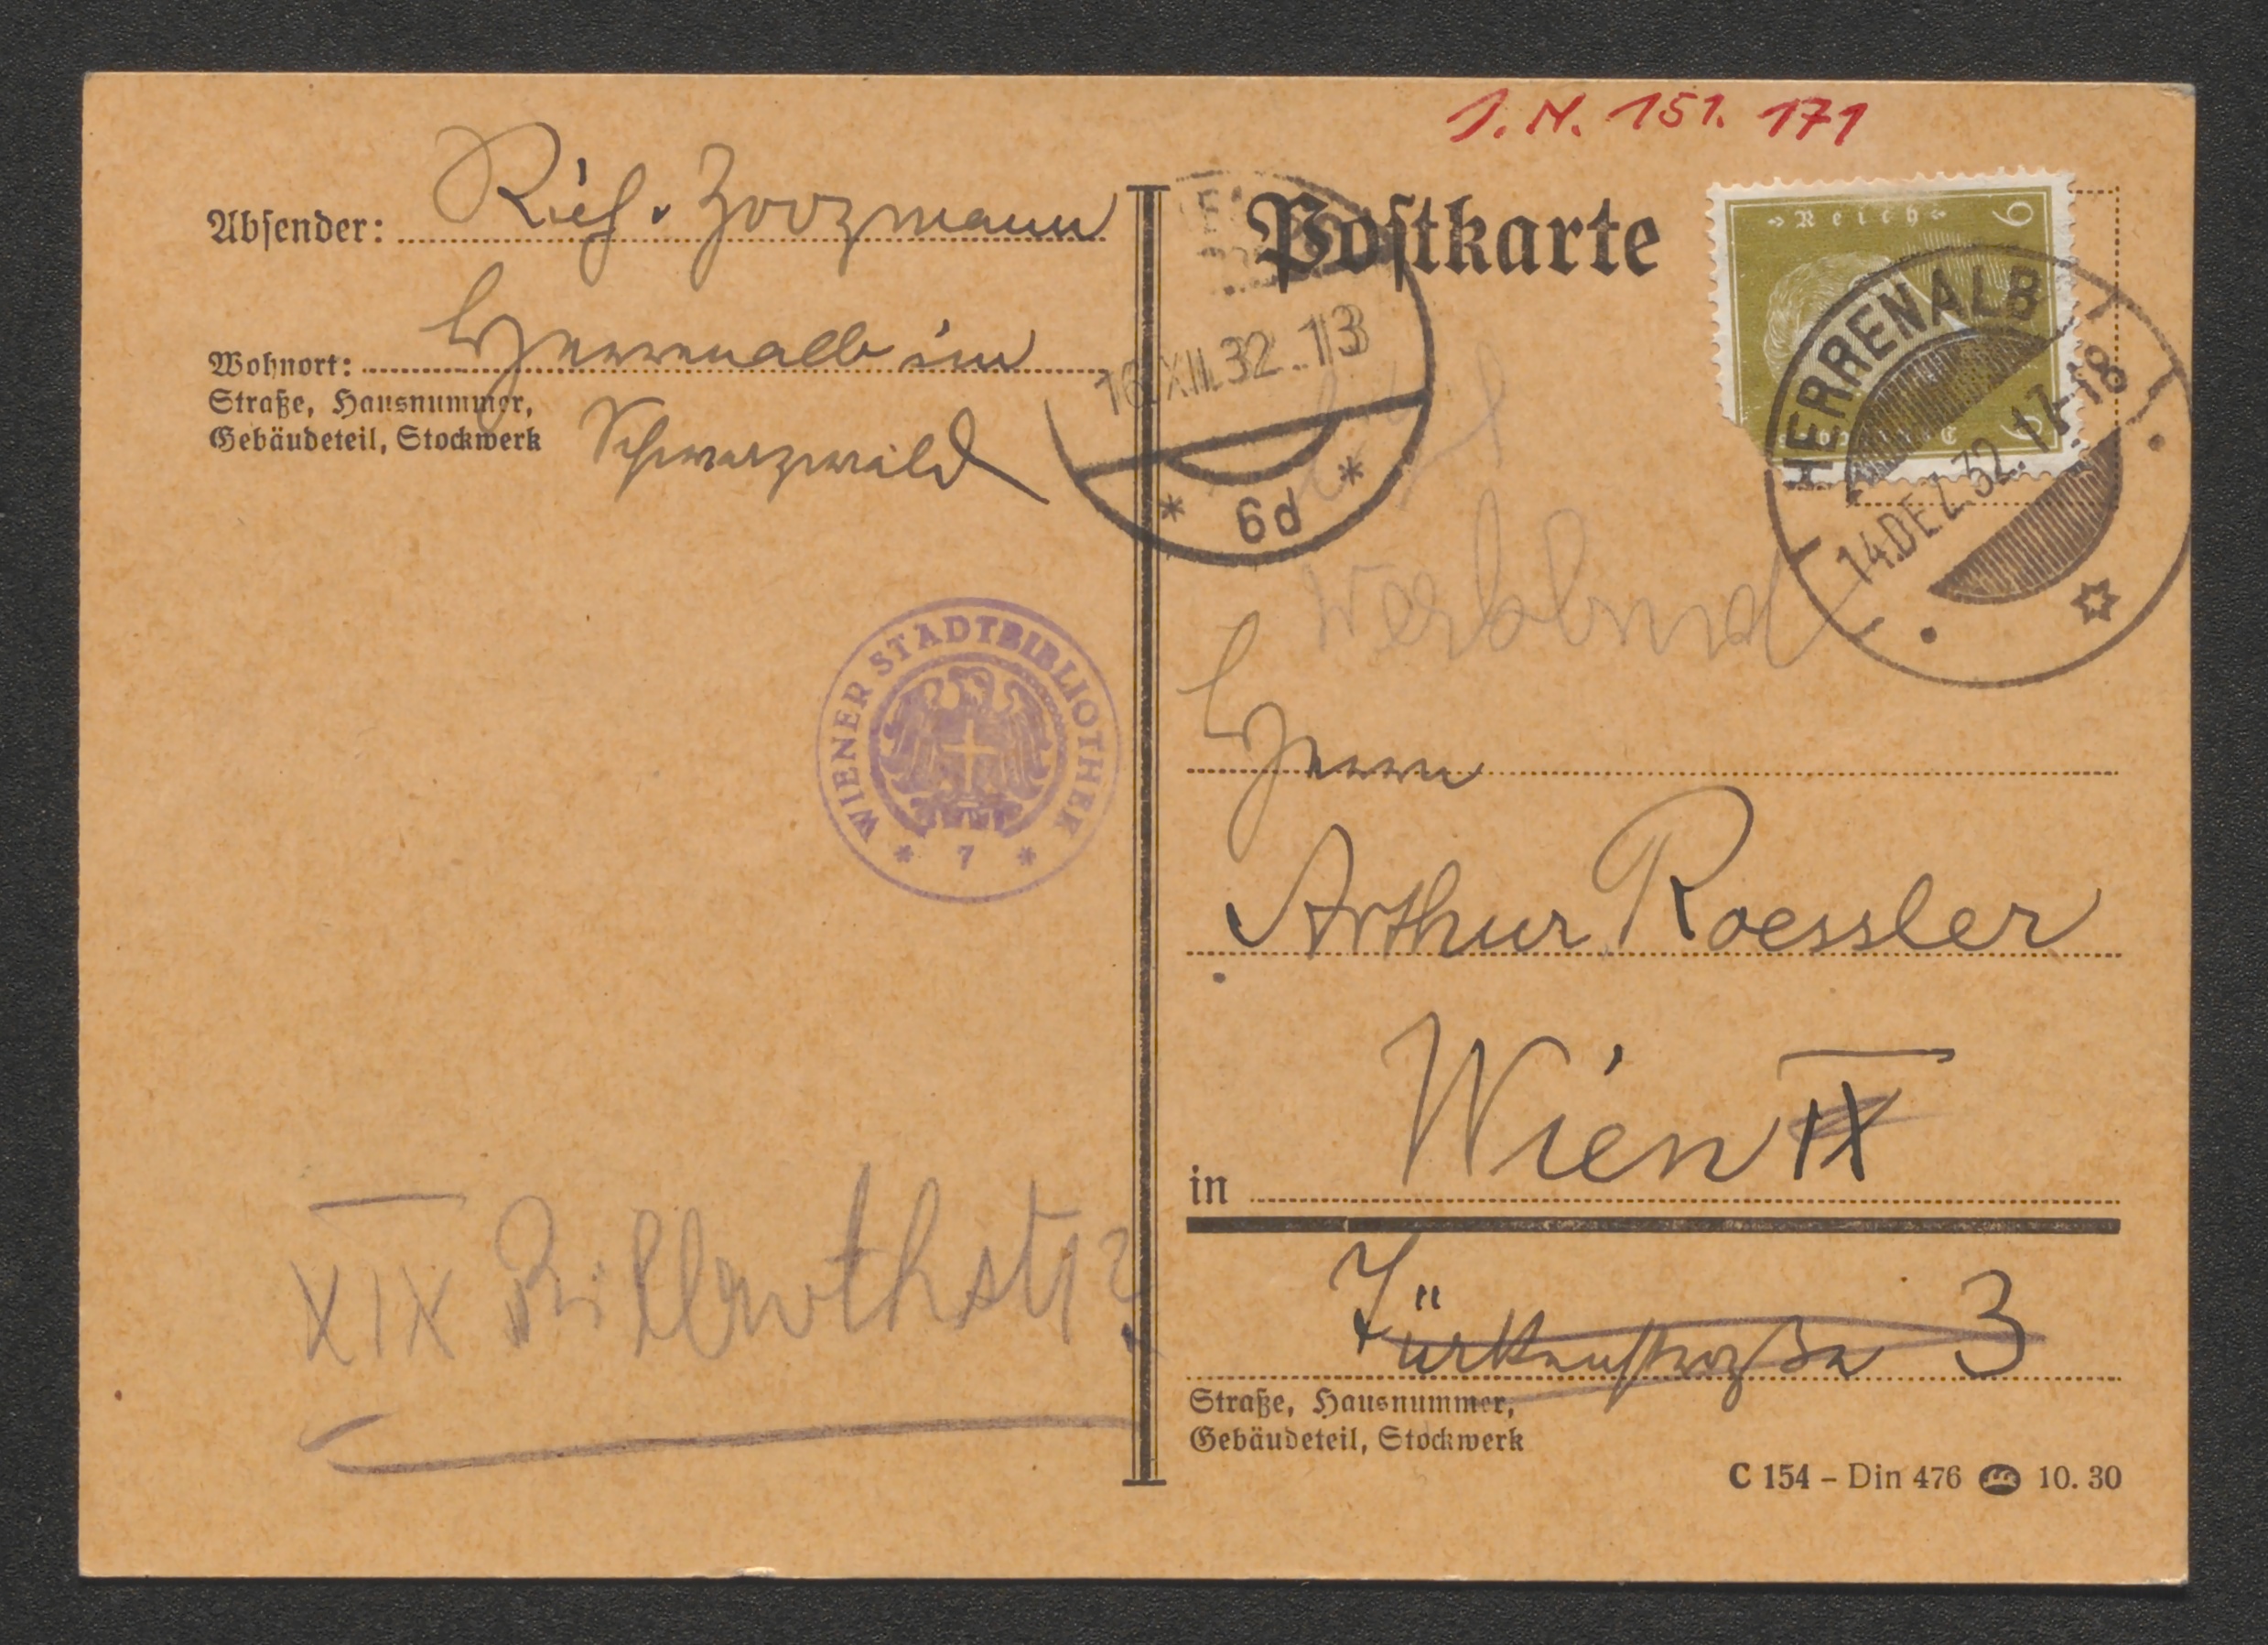 J. N. 151. 171
Absender: Rich. Zoozmann
Wohnort: Herrenalb im
Straße, Hausnummer,
Gebäudeteil, Stockwerk
Schwarzwald
Postkarte
Reich
6
6
HERRENALB
14.DEZ.32.17-18
16.XII.32..13
* 6d *
WIENER STADTBIBLIOTHEK
* 7 *
Werkbund
Herrn
Arthur Roessler
in Wien IX
Türkenstraße 3
Straße, Hausnummer,
Gebäudeteil, Stockwerk
XIX Billrothstr
C 154 – Din 476 10. 30